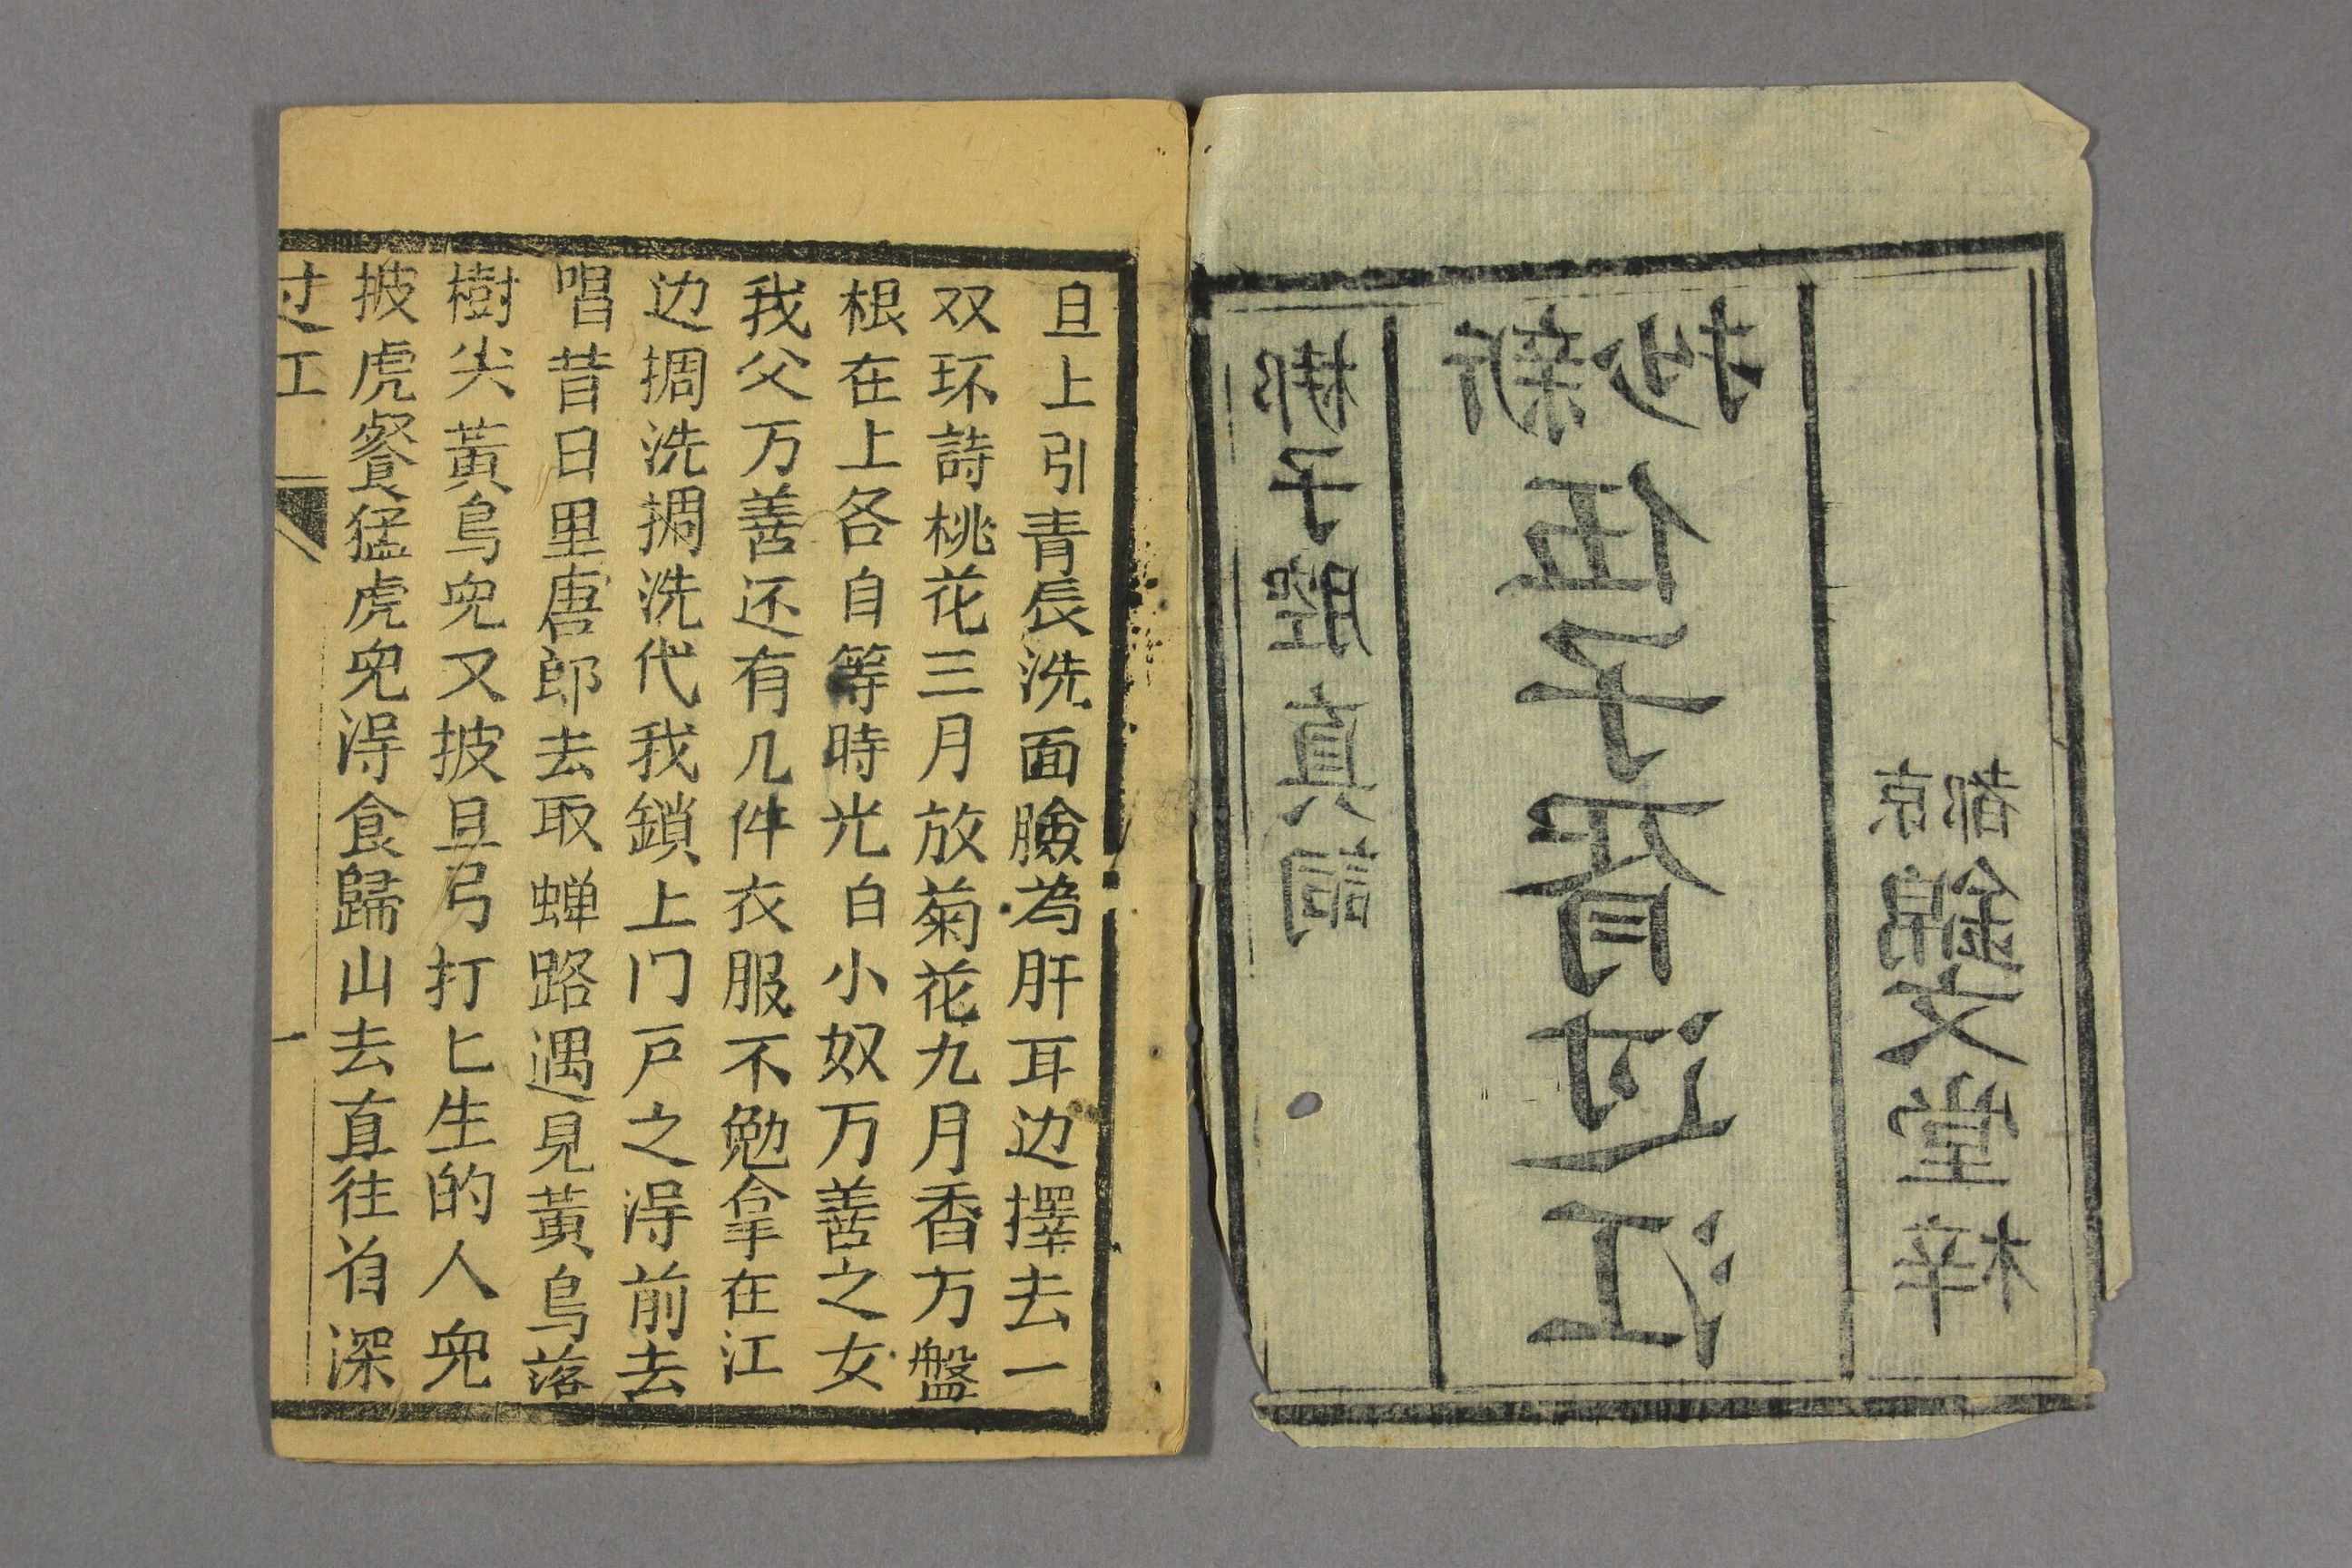 梆子腔真詞
新抄
伍子胥过江
京都
錦文堂梓
旦上引青辰洗面臉為肝耳边擇去一
双环詩桃花三月放菊花九月香万盤
根在上各自等時光白小奴万善之女
我父万善还有几件衣服不勉拿在江
边洗洗代我鎖上门戶之淂前去
唱昔日里唐郎去取蝉路遇見黃鳥落
樹尖黃鳥児又披旦弓打匕生的人児
披虎餐猛虎児淂食歸山去直往深
过江 一